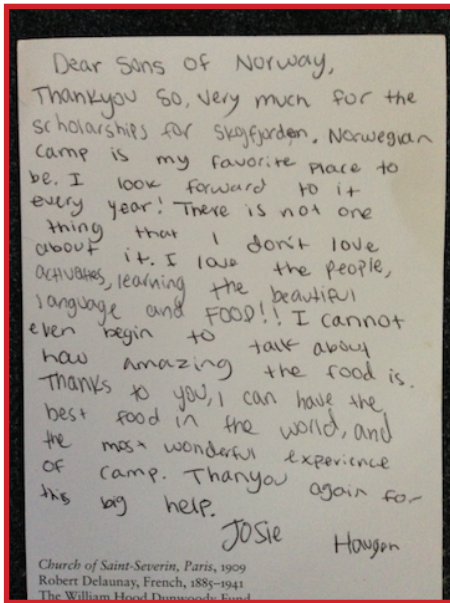 Dear Sons of Norway,
Thankyou so, very much for the
scholarships for Skogfjorden. Norwegian
camp is my favorite place to
be. I look forward to it
every year! There is not one
thing that I don't love
about it. I love the people,
activities, learning the beautiful
language and FOOD!! I cannot
even begin to talk about
how amazing the food is.
Thanks to you, I can have the
best food in the world, and
the most wonderful experience
of camp. Thanyou again for
this big help.
Josie Haugen
Church of Saint-Severin, Paris, 1909
Robert Delaunay, French, 1885–1941
The William Hood Dunwoody Fund